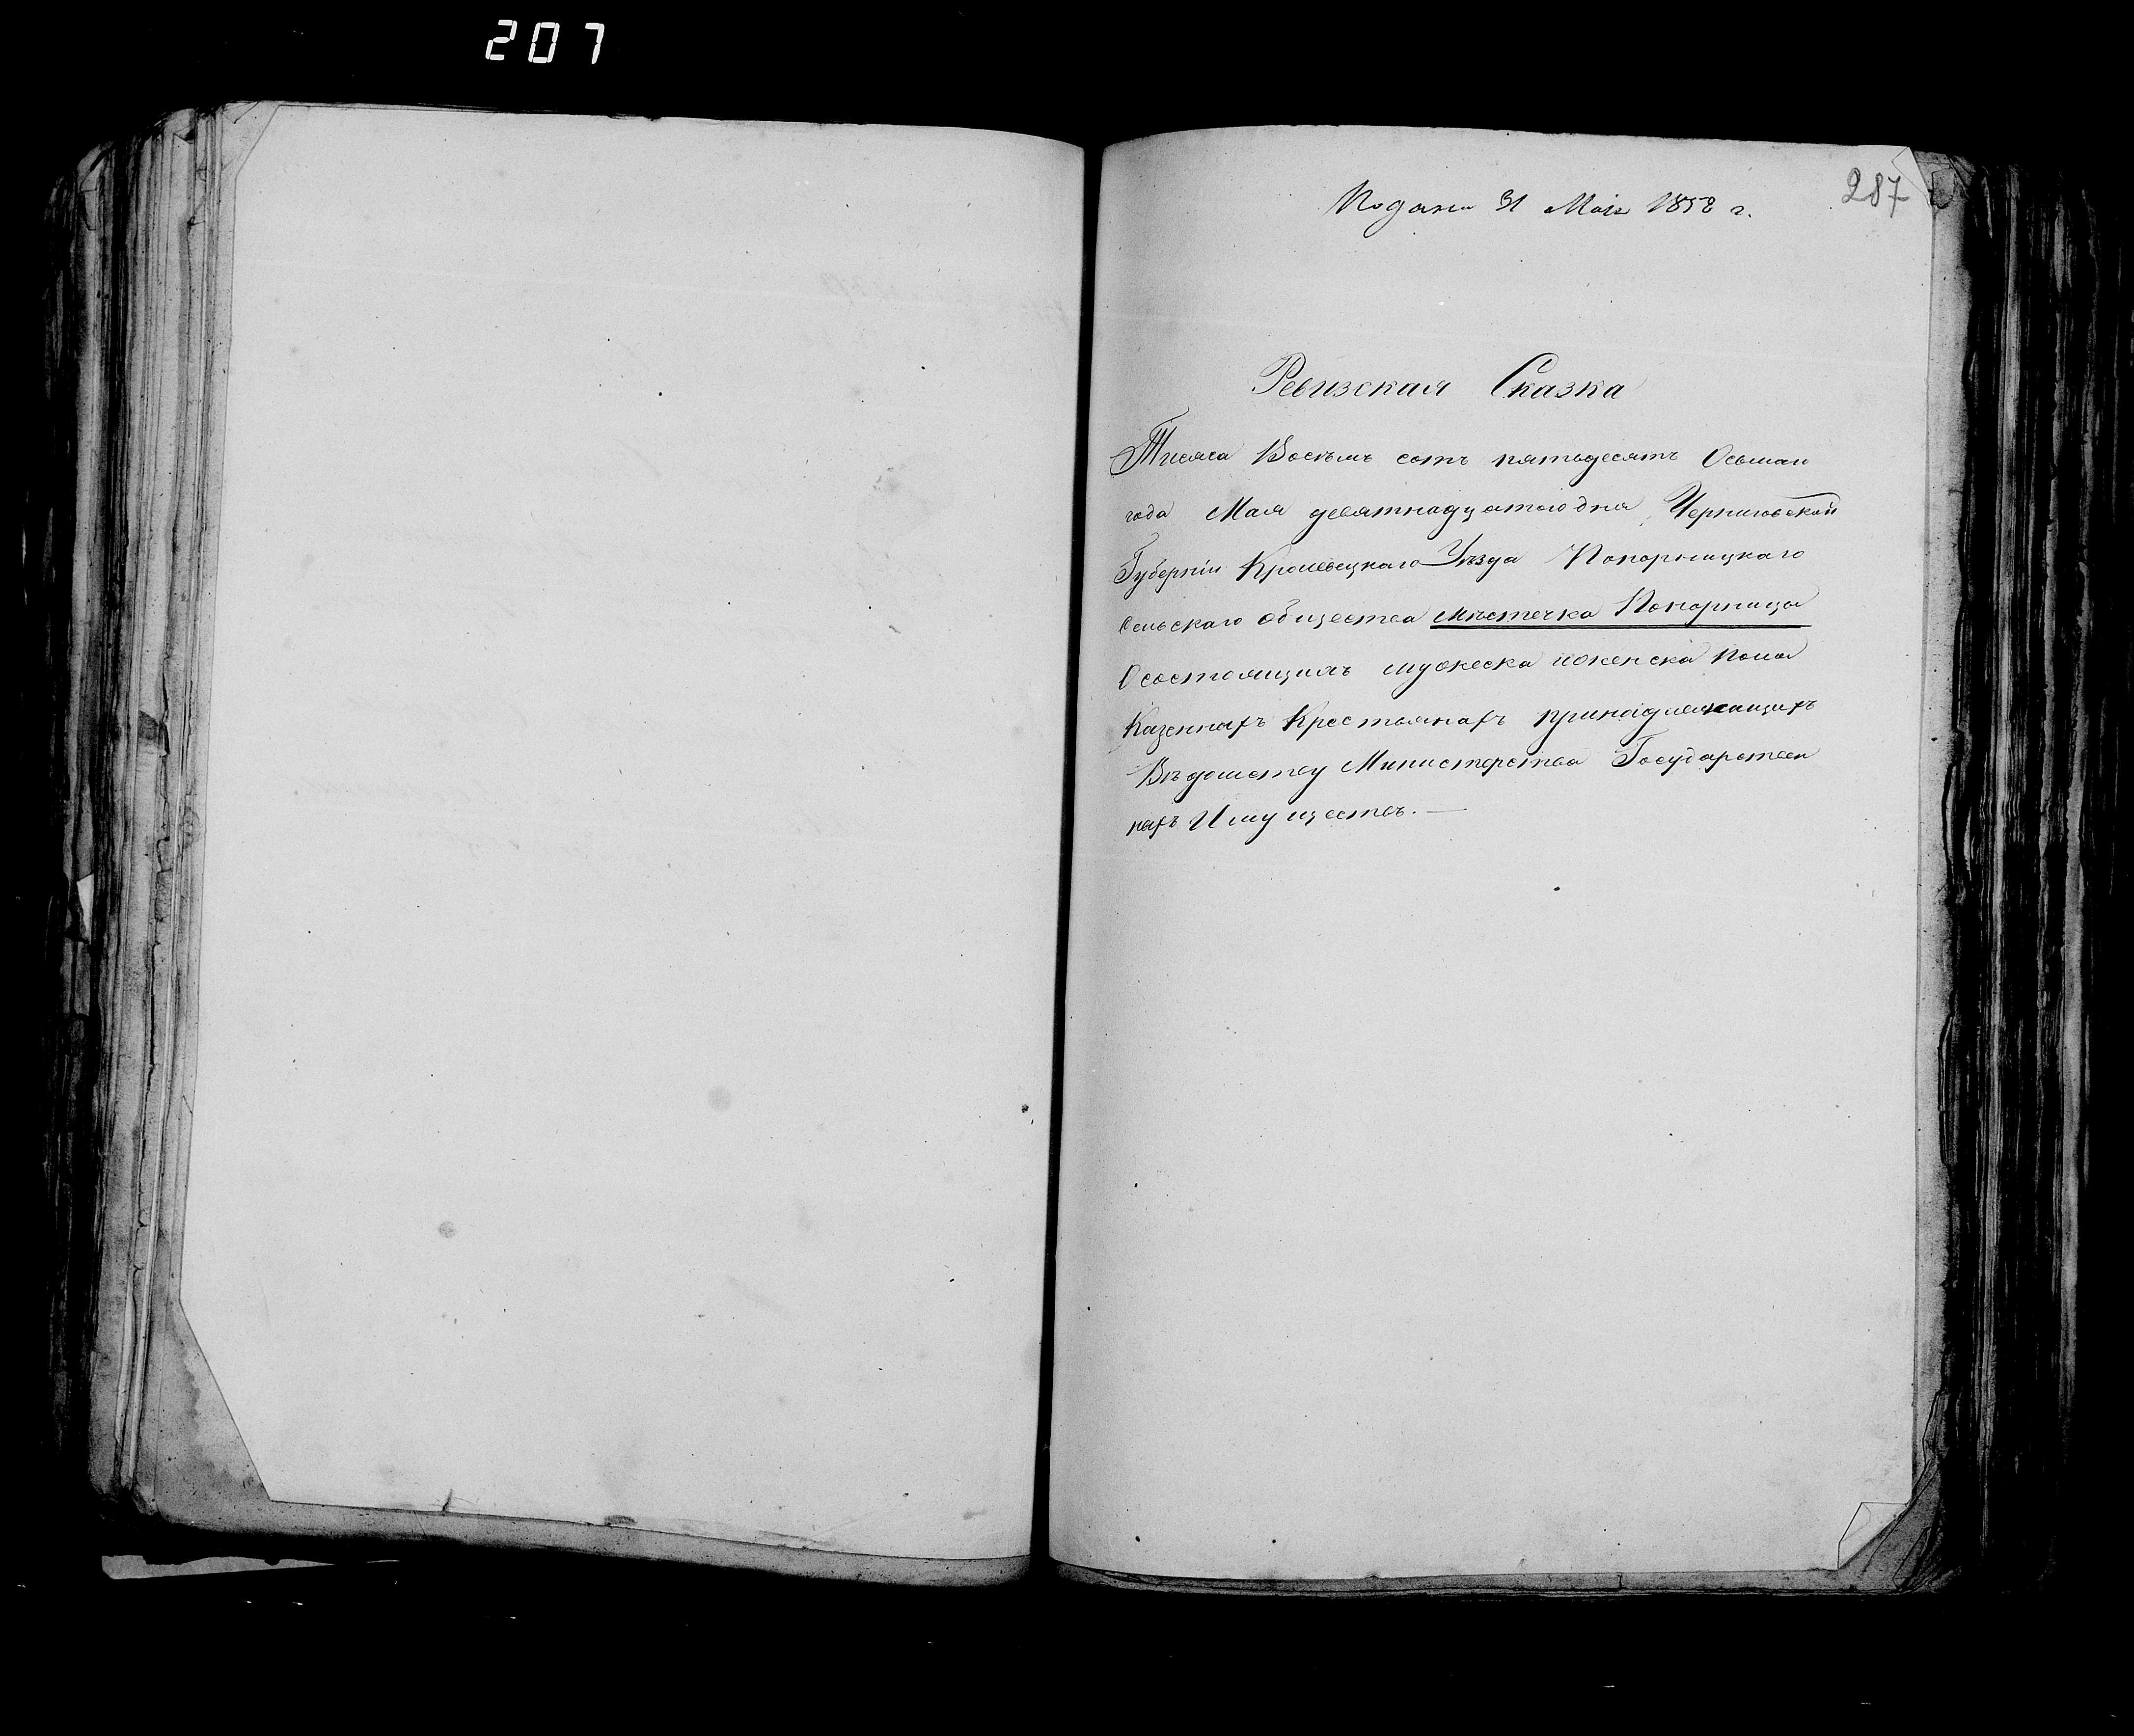 207
287
Подана 31 Мая 1858 г.
Ревизская Сказка
Тисяса Восемь сотъ пятьдесятъ Осьмаго
года Мая девятнадцатого дня Черниговской
Губерніи Кролевецкаго Уѣзда Понорницкаго
Сельскаго общества мѣстечка Понорница
О состоящихъ мужеска иженска пола
Казенныхъ Крестьянахъ принадлежащихъ
Вѣдомству Министерства Государствен
ныхъ Имуществъ. —